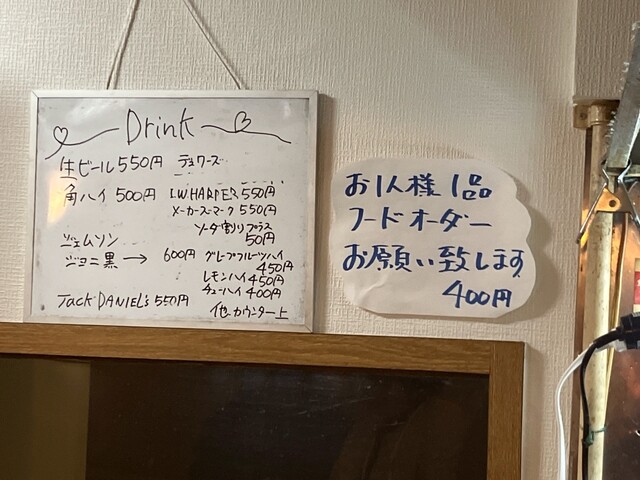 Drink
生ビール 550円
角ハイ 500円
ジェムソン
ジョニ黒 → 600円
Jack DANIEL's 550円
デュワーズ
I.W HARPER 550円
メーカーズマーク 550円
ソーダ割りプラス
50円
グレープフルーツハイ
450円
レモンハイ 450円
チューハイ 400円
他カウンター上
お1人様 1品
フードオーダー
お願い致します
400円